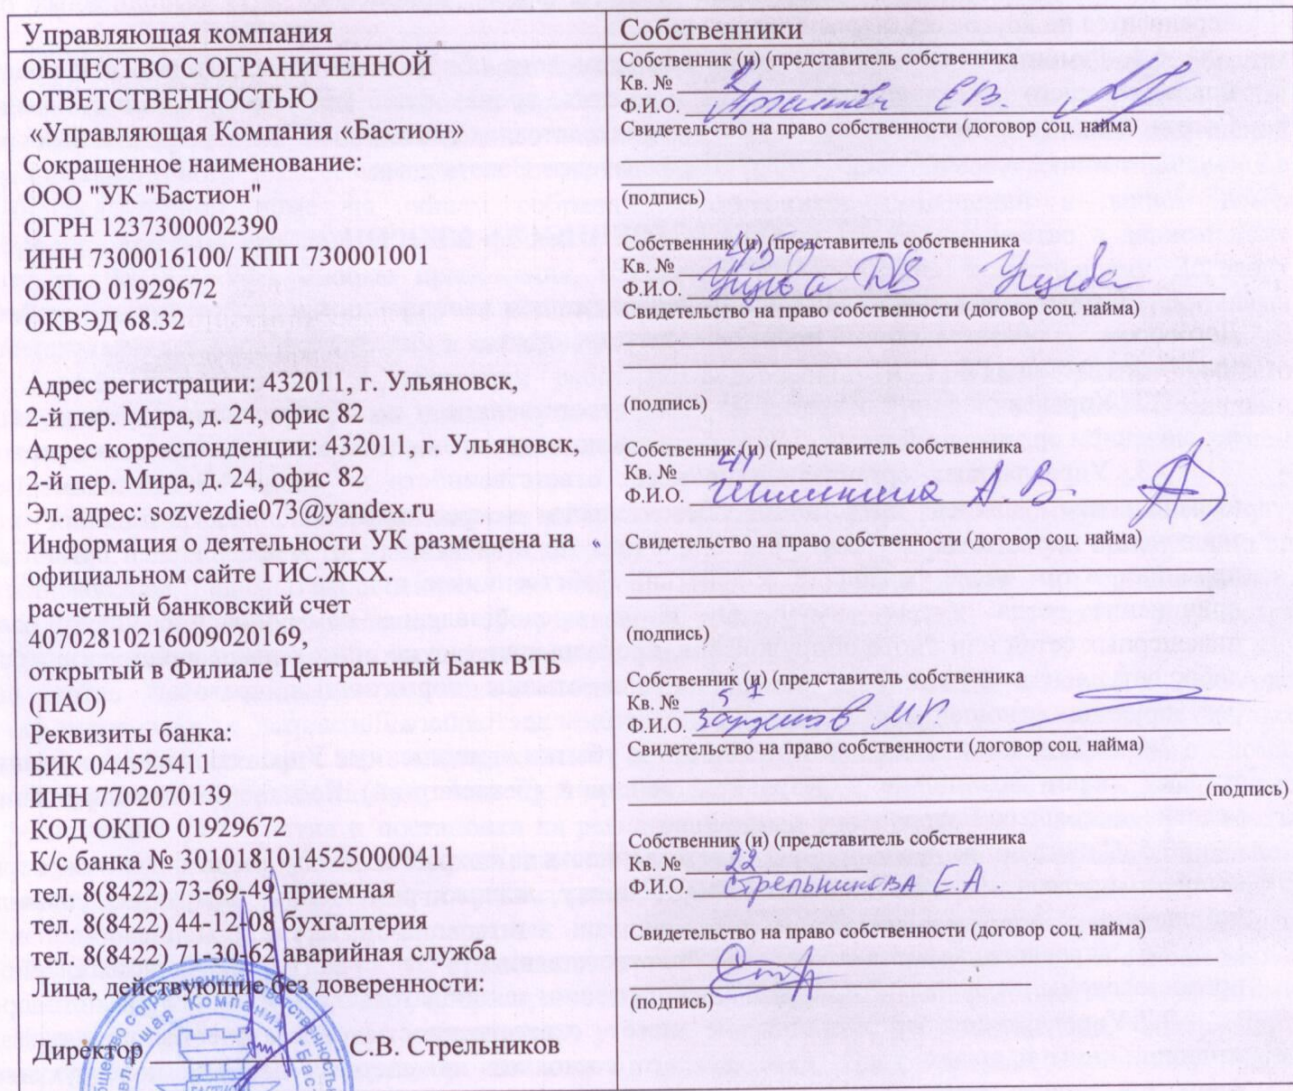 Управляющая компания
ОБЩЕСТВО С ОГРАНИЧЕННОЙ
ОТВЕТСТВЕННОСТЬЮ
«Управляющая Компания «Бастион»
Сокращенное наименование:
ООО "УК "Бастион"
ОГРН 1237300002390
ИНН 7300016100/ КПП 730001001
ОКПО 01929672
ОКВЭД 68.32
Адрес регистрации: 432011, г. Ульяновск,
2-й пер. Мира, д. 24, офис 82
Адрес корреспонденции: 432011, г. Ульяновск,
2-й пер. Мира, д. 24, офис 82
Эл. адрес: sozvezdie073@yandex.ru
Информация о деятельности УК размещена на
официальном сайте ГИС ЖКХ.
расчетный банковский счет
40702810216009020169,
открытый в Филиале Центральный Банк ВТБ
(ПАО)
Реквизиты банка:
БИК 044525411
ИНН 7702070139
КОД ОКПО 01929672
К/с банка № 30101810145250000411
тел. 8(8422) 73-69-49 приемная
тел. 8(8422) 44-12-08 бухгалтерия
тел. 8(8422) 71-30-62 аварийная служба
Лица, действующие без доверенности:
Директор С.В. Стрельников
Собственники
Собственник (и) (представитель собственника
Кв. №
Ф.И.О. Е.В.
Свидетельство на право собственности (договор соц. найма)
(подпись)
Собственник (и) (представитель собственника
Кв. №
Ф.И.О.
Свидетельство на право собственности (договор соц. найма)
(подпись)
Собственник (и) (представитель собственника
Кв. №
Ф.И.О. А В.
Свидетельство на право собственности (договор соц. найма)
(подпись)
Собственник (и) (представитель собственника
Кв. №
Ф.И.О.
Свидетельство на право собственности (договор соц. найма)
(подпись)
Собственник (и) (представитель собственника
Кв. № 22
Ф.И.О. Стрельникова Е.А
Свидетельство на право собственности (договор соц. найма)
(подпись)